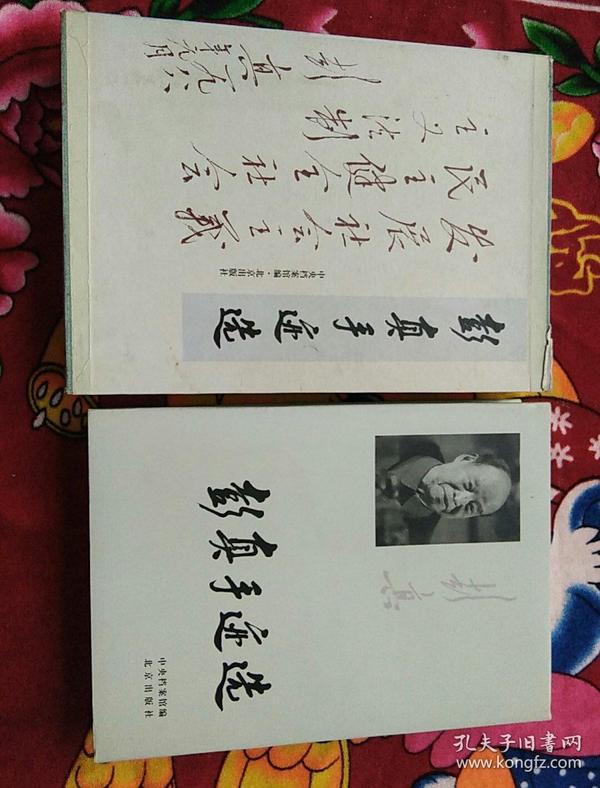 发展社会主义
民主健全社会
主义法制
彭真一九八六
年元月
中央档案馆编·北京出版社
彭真手迹选
彭真
彭真手迹选
中央档案馆编
北京出版社
孔夫子旧书网
www.kongfz.com